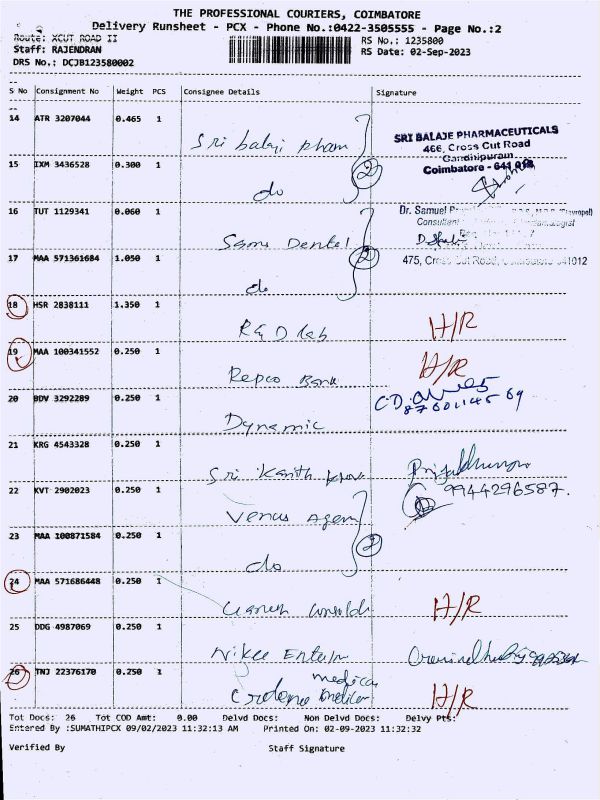 THE PROFESSIONAL COURIERS, COIMBATORE
Delivery Runsheet - PCX - Phone No.:0422-3505555 - Page No.:2
Route: XCUT ROAD II
RS No.: 1235800
Staff: RAJENDRAN
RS Date: 02-Sep-2023
DRS No.: DCJB123580002
S No Consignment No Weight PCS Consignee Details Signature
14 ATR 3207044 0.465 1
Sri balaji pham
SRI BALAJE PHARMACEUTICALS
466, Cross Cut Road
Gandhipuram,
Coimbatore - 641 012
15 IXM 3436528 0.300 1
do
2
16 TUT 1129341 0.060 1
Sams Dental
Dr. Samuel
Consultant
17 MAA 571361684 1.050 1
do
2
475, Cross Cut Road, 641012
18 HSR 2838111 1.350 1
R&D lab H/R
19 MAA 100341552 0.250 1
Repco Bank H/R
20 BDV 3292289 0.250 1
Dynamic
21 KRG 4543328 0.250 1
Sri Kanth
9944296587.
22 KVT 2902023 0.250 1
Venus Agen
23 MAA 100871584 0.250 1
do
2
24 MAA 571686448 0.250 1
H/R
25 DDG 4987069 0.250 1
26 TNJ 22376170 0.250 1
medical
H/R
Tot Docs: 26 Tot COD Amt: 0.00 Delvd Docs: Non Delvd Docs: Delvy Pts:
Entered By :SUMATHIPCX 09/02/2023 11:32:13 AM Printed On: 02-09-2023 11:32:32
Verified By Staff Signature